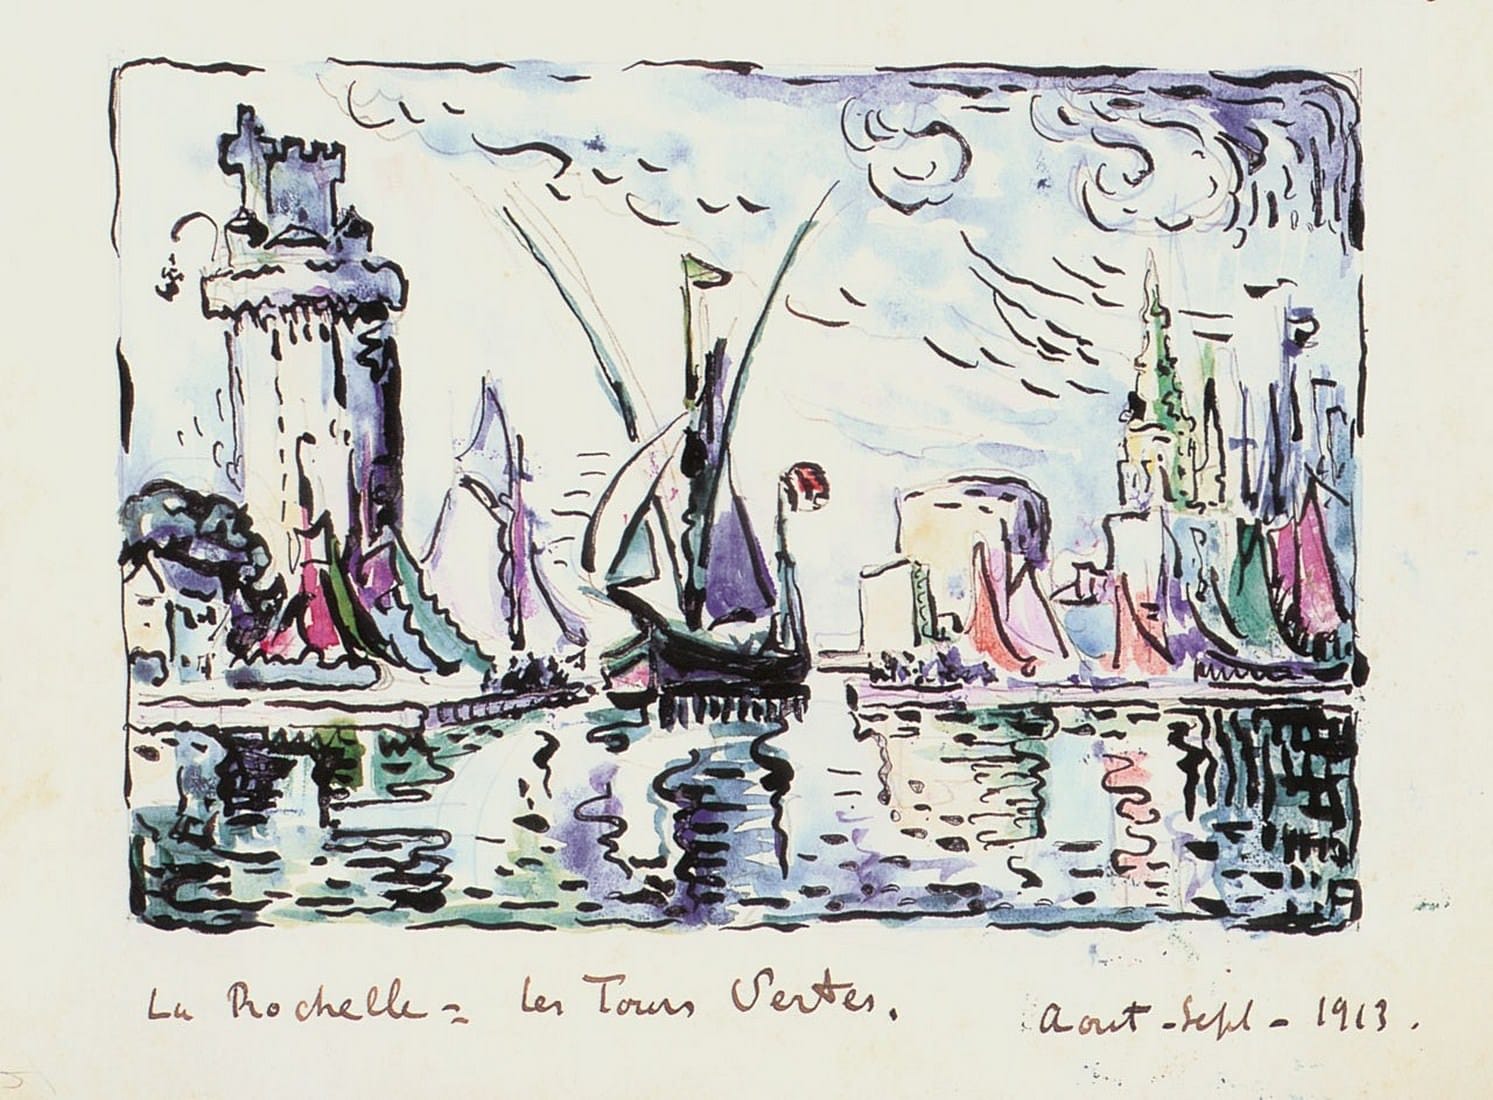 La Rochelle = les Tours Vertes.
Aout - Sept - 1913.